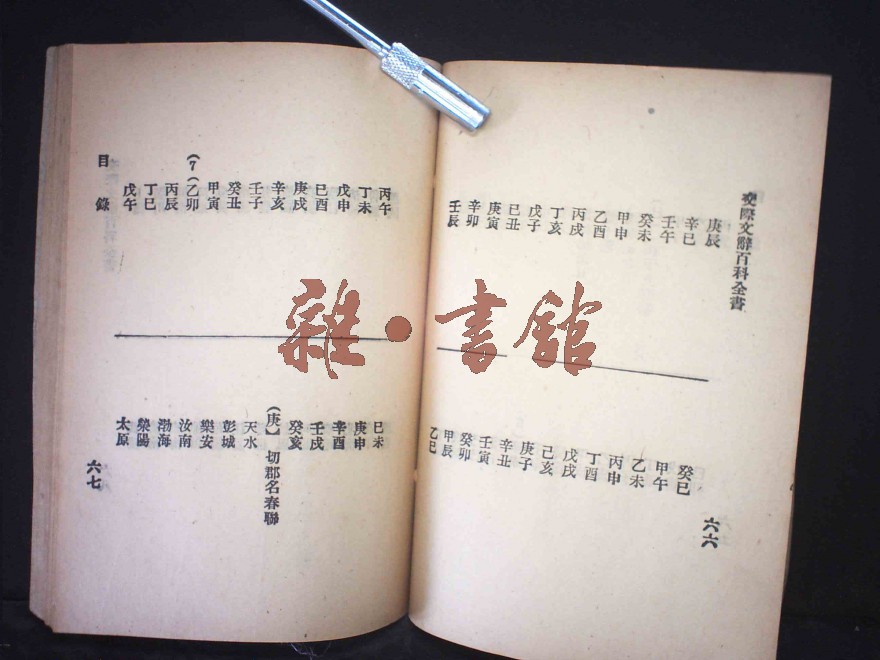 交際文辭百科全書
庚辰
辛巳
壬午
癸未
甲申
乙酉
丙戌
丁亥
戊子
巳丑
庚寅
辛卯
壬辰
癸巳
甲午
乙未
丙申
丁酉
戊戌
己亥
庚子
辛丑
壬寅
癸卯
甲辰
乙巳
六六
丙午
丁未
戊申
巳酉
庚戌
辛亥
壬子
癸丑
甲寅
(7(乙卯
丙辰
丁巳
戊午
目錄
巳未
庚申
辛酉
壬戌
癸亥
(庚)切郡名春聯
天水
彭城
樂安
汝南
渤海
滎陽
太原
六七
雜·書館